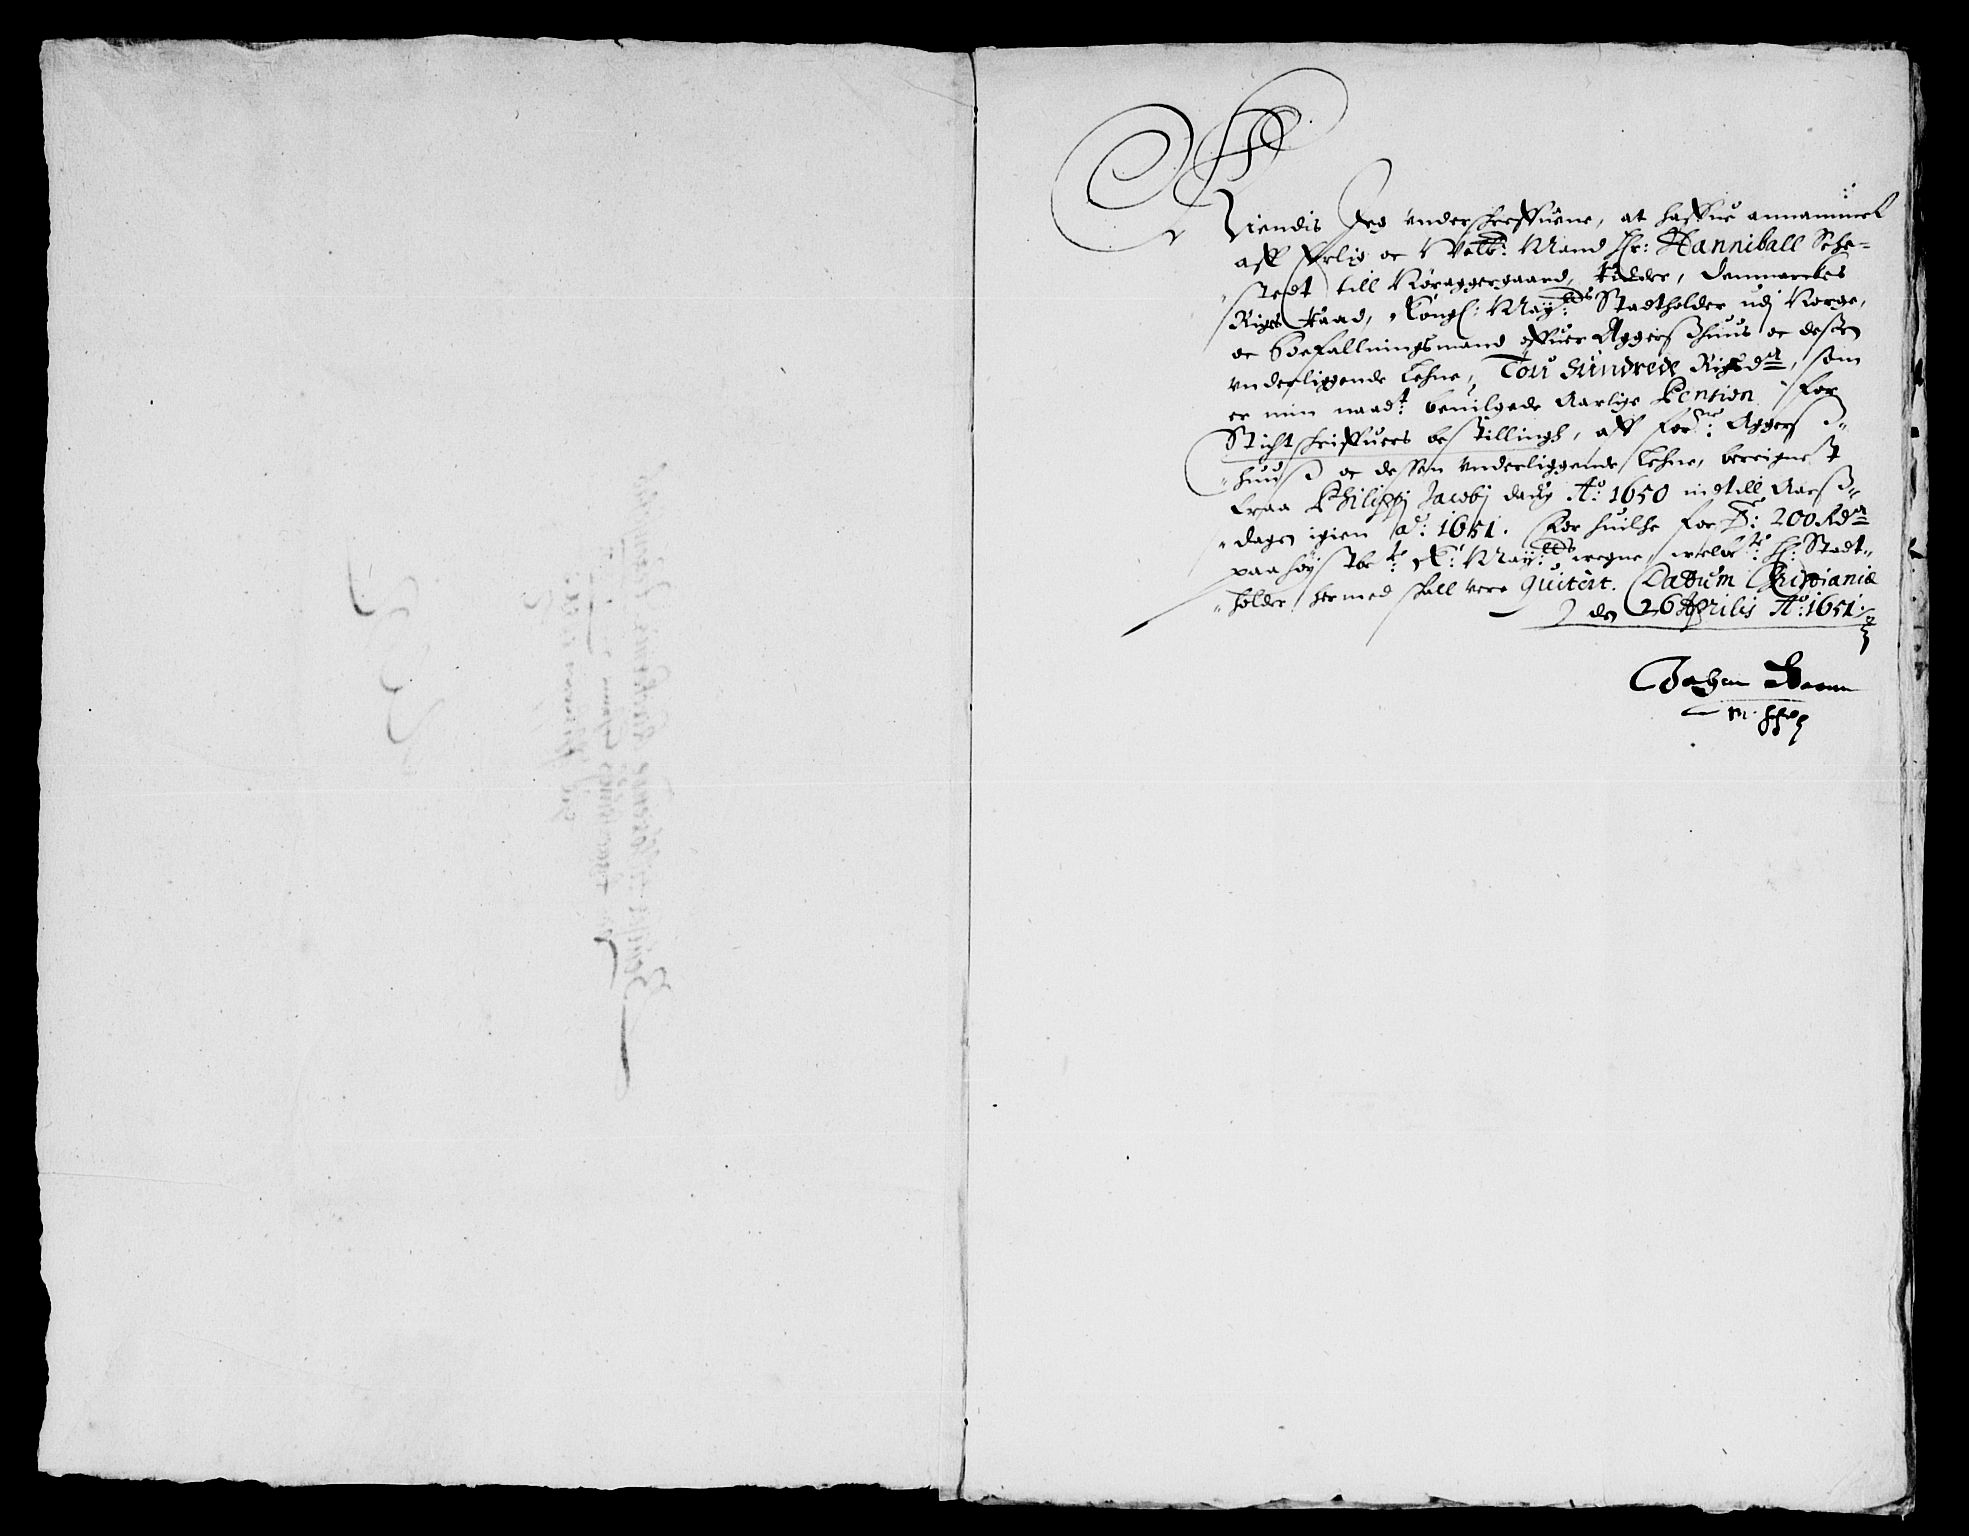 Kiendis Jeg underschreffuene, at haffue annammet
aff Erlig oc Velb: Mand Hr: Hanniball Sehe=
stedt till Nøraggergaard, Ridder, Danmarckes
Riges Raad, Kongl: May:tts Stadtholder udj Norge,
oc Befallningsmand offuer Aggerßhuus oc deßen
underliggende Lehne, Tou hundrede Rixdr, som
er min naadt: beuilgede Aarlige Pension for
Stichtschriffuers bestillingh, aff forne: Aggerß=
huuß oc dessen underliggende Lehne, bereignet
fraa Philippj Jacobj dag Ao: 1650 indtill Aarß=
dagen igien Ao: 1651. For huilche forne: 200 Rdr
paa høystbete: Ko: May:tts wegne, welbte: Hr: Stadt=
holder hermed skall vere Quitert. Datum Christianiæ
den 26 Aprilis Ao: 1651.